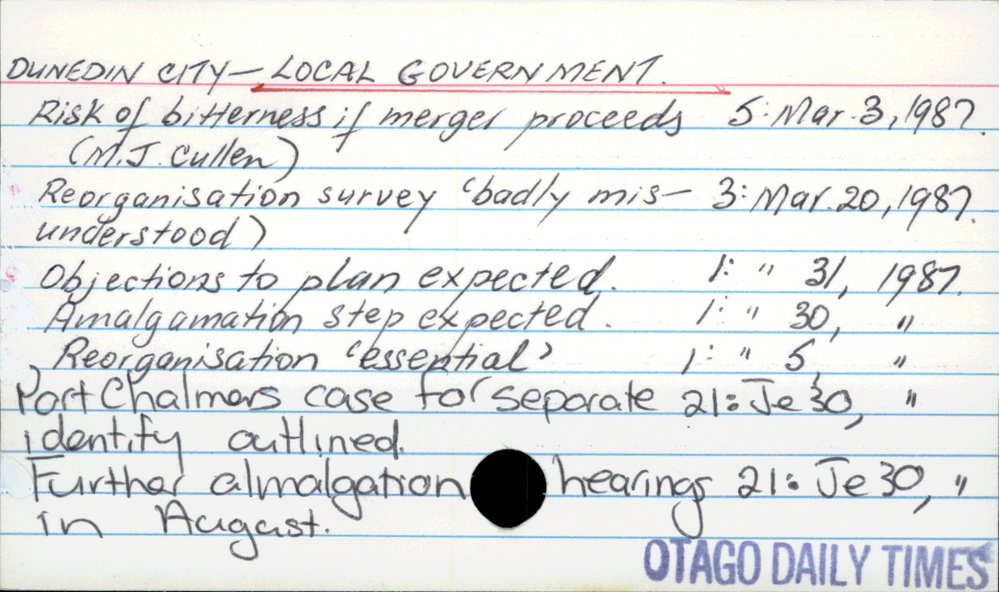 DUNEDIN CITY – LOCAL GOVERNMENT.
Risk of bitterness if merger proceeds 5: Mar. 3, 1987.
(M.J. Cullen)
Reorganisation survey 'badly mis- 3: Mar. 20, 1987.
understood)
Objections to plan expected. 1: " 31, 1987.
Amalgamation step expected. 1: " 30, "
Reorganisation 'essential' 1: " 5, "
Port Chalmers case for separate 21: Je 30, "
identity outlined.
Further almalgation hearings 21: Je 30, "
in August.
OTAGO DAILY TIMES